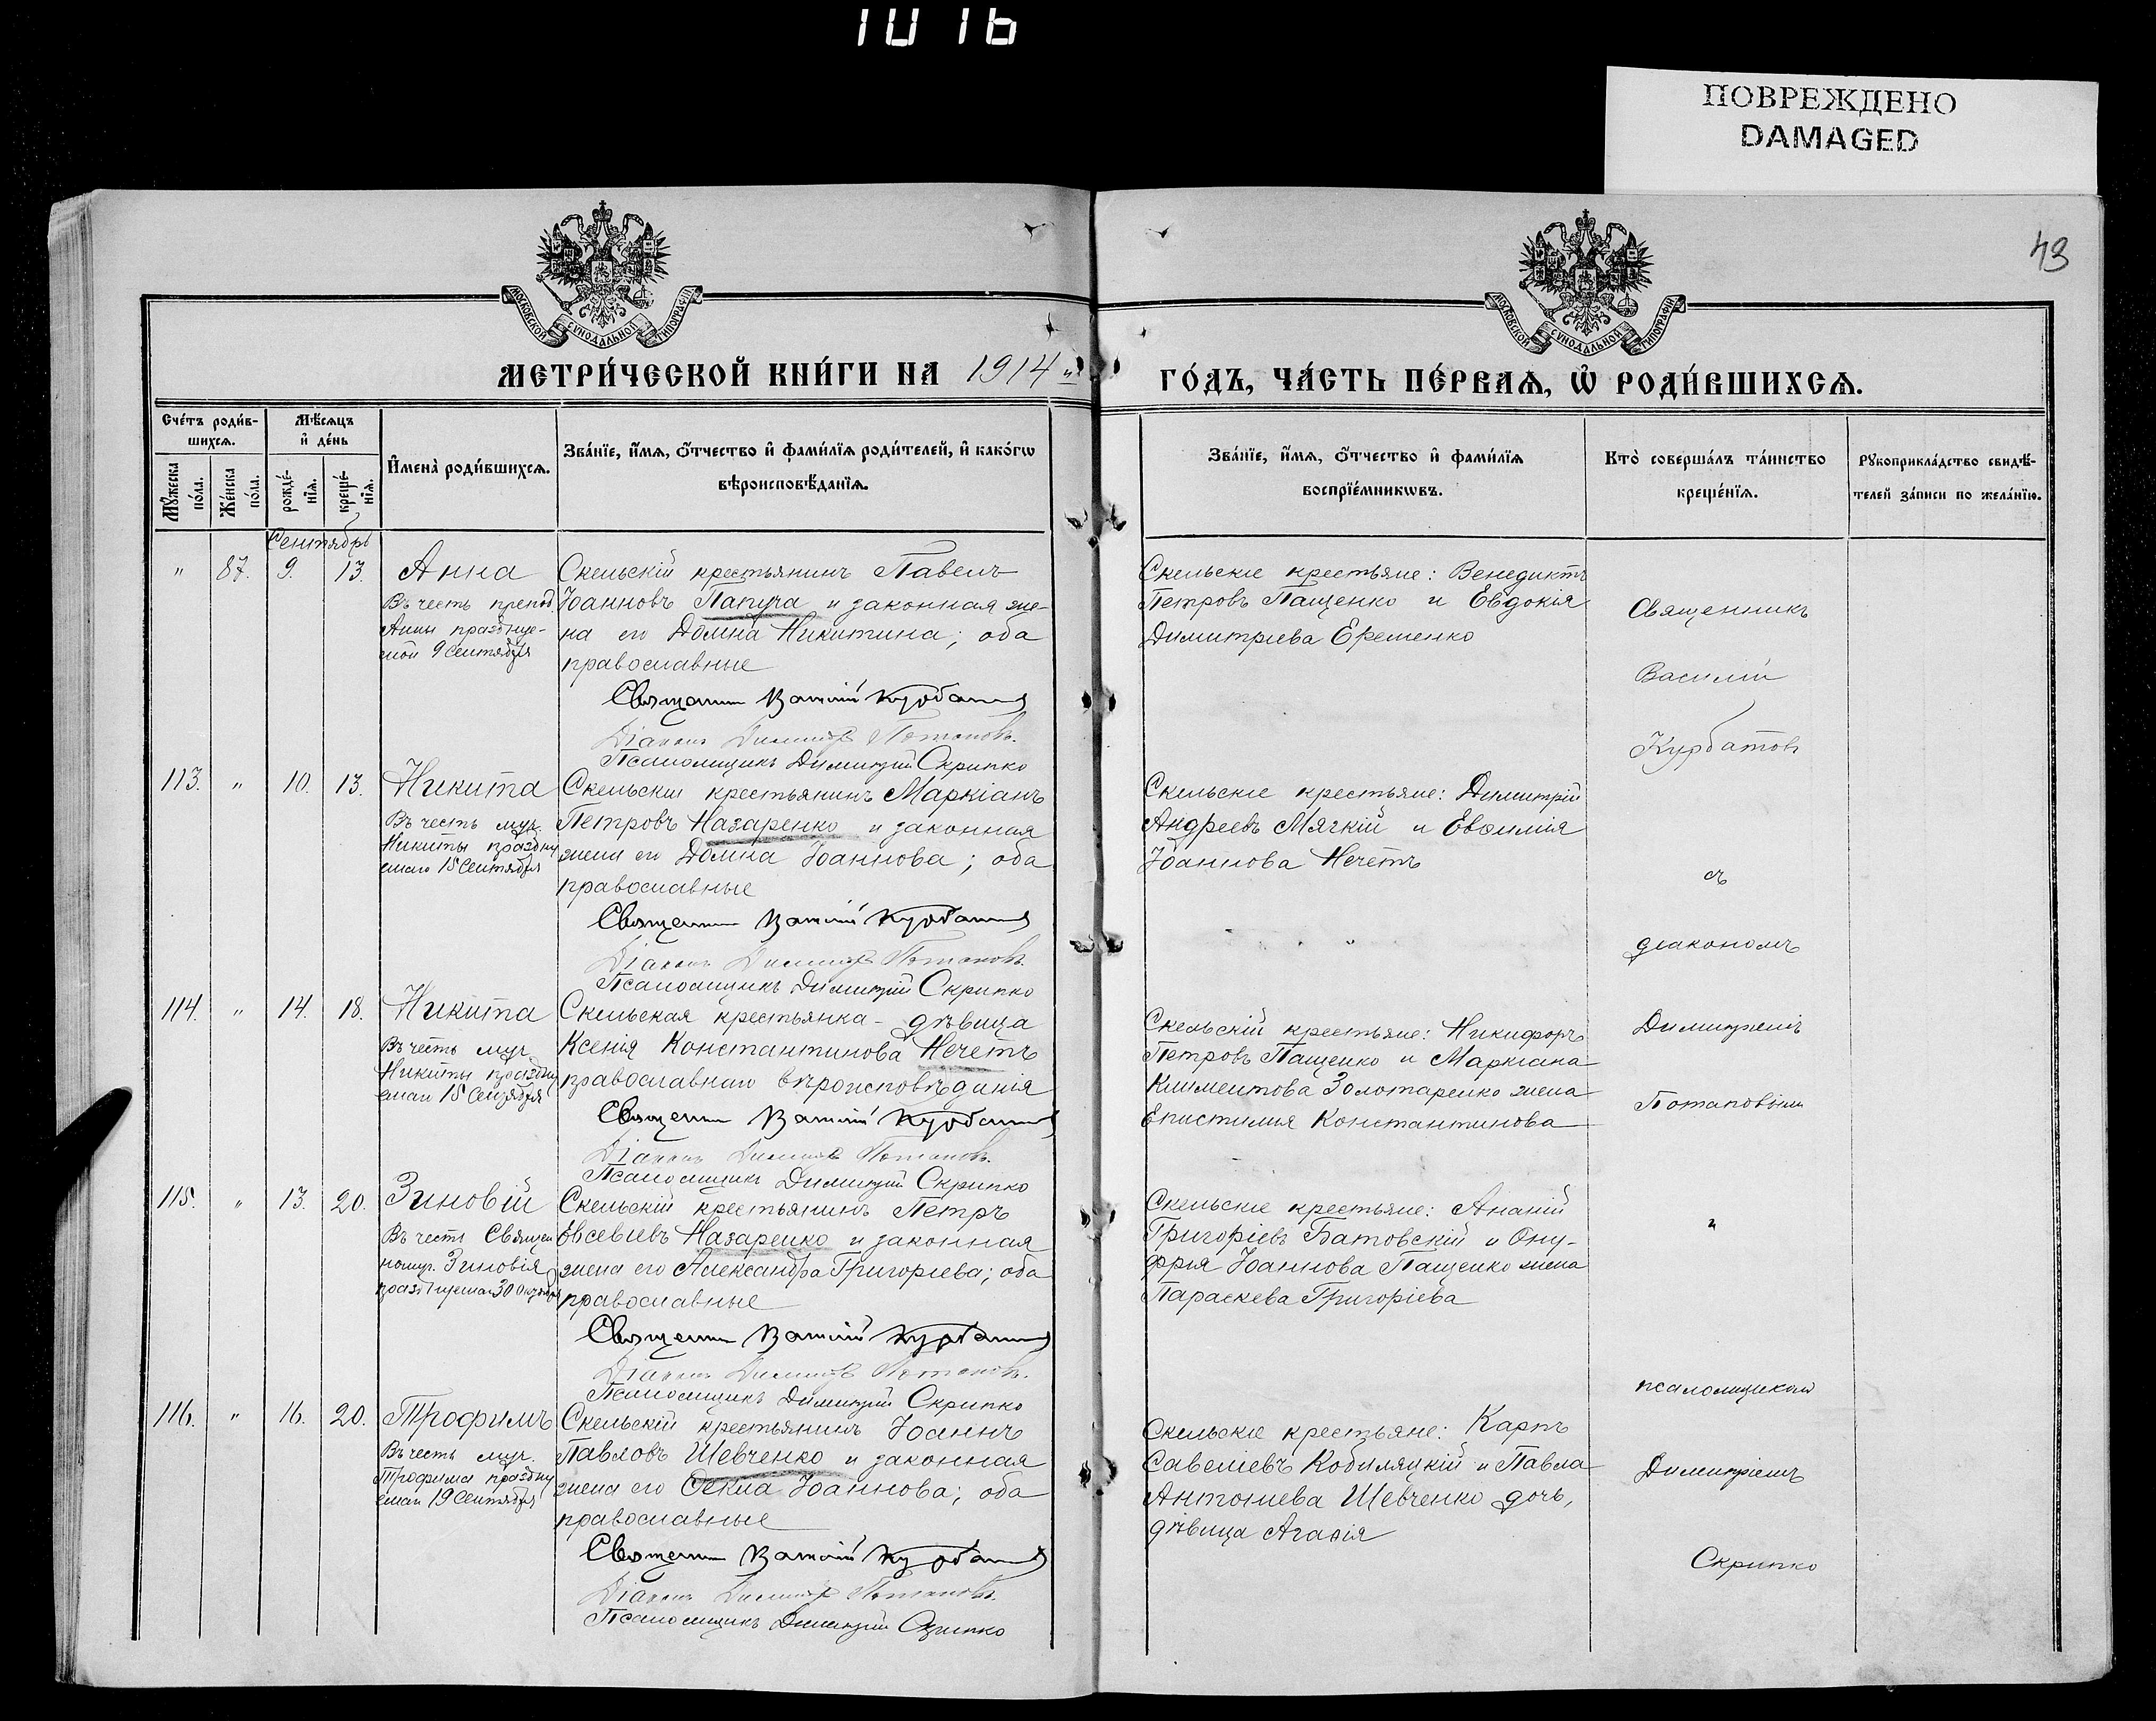 1016
ПОВРЕЖДЕНО
DAMAGED
43
МОСКОВСКОЙ СѴНОДАЛЬНОЙ ТИПОГРАФІИ
МОСКОВСКОЙ СѴНОДАЛЬНОЙ ТИПОГРАФІИ
МЕТРИ́ЧЕСКОЙ КНИ́ГИ НА 1914 й
ГО́ДЪ, ЧА́СТЬ ПЕ́РВАѦ, Ѡ РОДИ́ВШИХСѦ.
Сче́тъ роди́в-
шихсѧ.
Мꙋ́жеска по́ла.
Же́нска по́ла.
Мѣ́сѧцъ
и де́нь
рожде́-
нїѧ.
креще́-
нїѧ.
Имена̀ роди́вшихсѧ.
Зва́нїе, и́мѧ, о́тчество и фами́лїѧ роди́телей, и како́гѡ
вѣроисповѣ́данїѧ.
Зва́нїе, и́мѧ, о́тчество и фами́лїѧ
воспрїе́мникѡвъ.
Кто̀ соверша́лъ та́инство
креще́нїѧ.
Рꙋкоприкла́дство свидѣ́-
телей за́писи по жела́нїю.
Сентябрь
" 87. 9. 13. Анна
Въ честь препод.
Анны праздnуе-
мой 9 Сентября
Скельскій крестьянинъ Павелъ
Іоанновъ Папуча и законная же-
на его Домна Никитина; оба
православные
Священникъ Василій Курбатовъ
Діаконъ Димитрій Потаповъ.
Псаломщикъ Димитрій Скрипко
Скельскіе крестьяне: Венедиктъ
Петровъ Пащенко и Евдокія
Димитріева Еременко
113. " 10. 13. Никита
Въ честь муч.
Никиты праздну
емаго 15 Сентября
Скельскій крестьянинъ Маркіанъ
Петровъ Назаренко и законная
жена его Домна Іоаннова; оба
православные
Священникъ Василій Курбатовъ
Діаконъ Димитрій Потаповъ.
Псаломщикъ Димитрій Скрипко
Скельскіе крестьяне: Димитрій
Андреевъ Мячкій и Евѳимія
Іоаннова Нечетъ
114. " 14. 18. Никита
Въ честь муч.
Никиты праздну
емаго 15 Сентября
Скельская крестьянка - дѣвица
Ксенія Константинова Нечетъ
православнаго вѣроисповѣданія
Священникъ Василій Курбатовъ
Діаконъ Димитрій Потаповъ.
Псаломщикъ Димитрій Скрипко
Скельскій крестьяне: Никифоръ
Петровъ Пащенко и Маркіана
Климентова Золотаренко жена
Епистимія Константинова
115. " 13. 20. Зиновій
Въ честь Священ
номуч. Зиновія
празднуемаго 30 Октября
Скельскій крестьянинъ Петръ
Евсевіевъ Назаренко и законная
жена его Александра Григоріева; оба
православные
Священникъ Василій Курбатовъ
Діаконъ Димитрій Потаповъ.
Псаломщикъ Димитрій Скрипко
Скельскіе крестьяне: Ананій
Григоріевъ Батовскій и Ону-
фрія Іоаннова Пащенко жена
Параскева Григоріева
116. " 16. 20. Трофимъ
Въ честь муч.
Трофима праздну
емаго 19 Сентября
Скельскій крестьянинъ Іоаннъ
Павловъ Шевченко и законная
жена его Ѳекла Іоаннова; оба
православные
Священникъ Василій Курбатовъ
Діаконъ Димитрій Потаповъ.
Псаломщикъ Димитрій Скрипко
Скельскіе крестьяне: Карпъ
Савеліевъ Кобиляцкій и Павла
Антоніева Шевченко дочь,
дѣвица Агаѳія
Священникъ
Василій
Курбатовъ
съ
діакономъ
Димитріемъ
Потаповымъ
и
псаломщикомъ
Димитріемъ
Скрипко